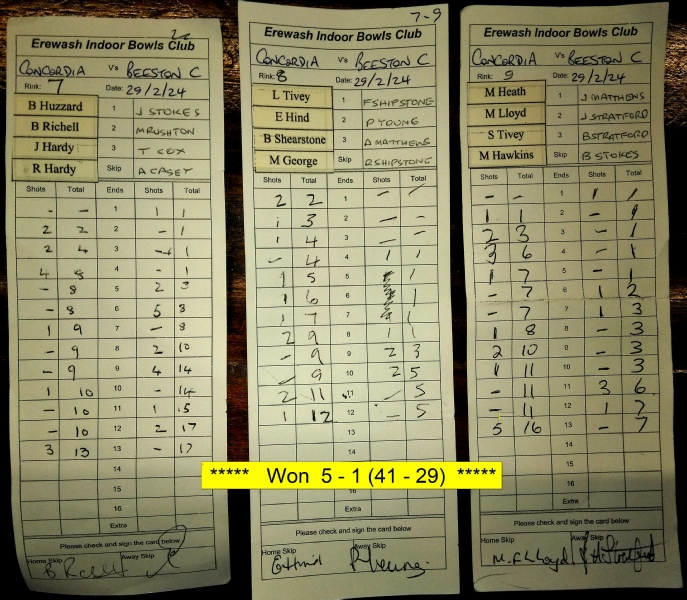 22
Erewash Indoor Bowls Club
CONCORDIA V's BEESTON C
Rink: 7 Date: 29/2/24
B Huzzard 1 J STOKES
B Richell 2 M RUSHTON
J Hardy 3 T COX
R Hardy Skip A CASEY
Shots Total Ends Shots Total
- - 1 1 1
2 2 2 - 1
2 4 3 - 1
4 8 4 - 1
- 8 5 2 3
- 8 6 5 8
1 9 7 - 8
- 9 8 2 10
- 9 9 4 14
1 10 10 - 14
- 10 11 1 15
- 10 12 2 17
3 13 13 - 17
14
15
16
Extra
Please check and sign the card below
Home Skip Away Skip
7-9
Erewash Indoor Bowls Club
CONCORDIA V's BEESTON C
Rink: 8 Date: 29/2/24
L Tivey 1 F SHIPSTONE
E Hind 2 P YOUNG
B Shearstone 3 A MATTHEWS
M George Skip D SHIPSTONE
Shots Total Ends Shots Total
2 2 1 - -
1 3 2 - -
1 4 3 - -
- 4 4 1 1
1 5 5 1
1 6 6 1
1 7 7 1
2 9 8 1
- 9 9 2 3
- 9 10 2 5
2 11 11 - 5
1 12 12 - 5
13
14
15
16
Extra
Please check and sign the card below
Home Skip Away Skip
E Hind P Young
Erewash Indoor Bowls Club
CONCORDIA V's BEESTON C
Rink: 9 Date: 29/2/24
M Heath 1 J MATTHEWS
M Lloyd 2 J STRATFORD
S Tivey 3 B STRATFORD
M Hawkins Skip B STOKES
Shots Total Ends Shots Total
- - 1 1 1
1 1 2 - 1
2 3 3 - 1
3 6 4 - 1
1 7 5 - 1
- 7 6 1 2
- 7 7 1 3
1 8 8 - 3
2 10 9 - 3
1 11 10 - 3
- 11 11 3 6
- 11 12 1 7
5 16 13 - 7
14
15
16
Extra
Please check and sign the card below
Home Skip Away Skip
M. F Lloyd
***** Won 5 - 1 (41 - 29) *****